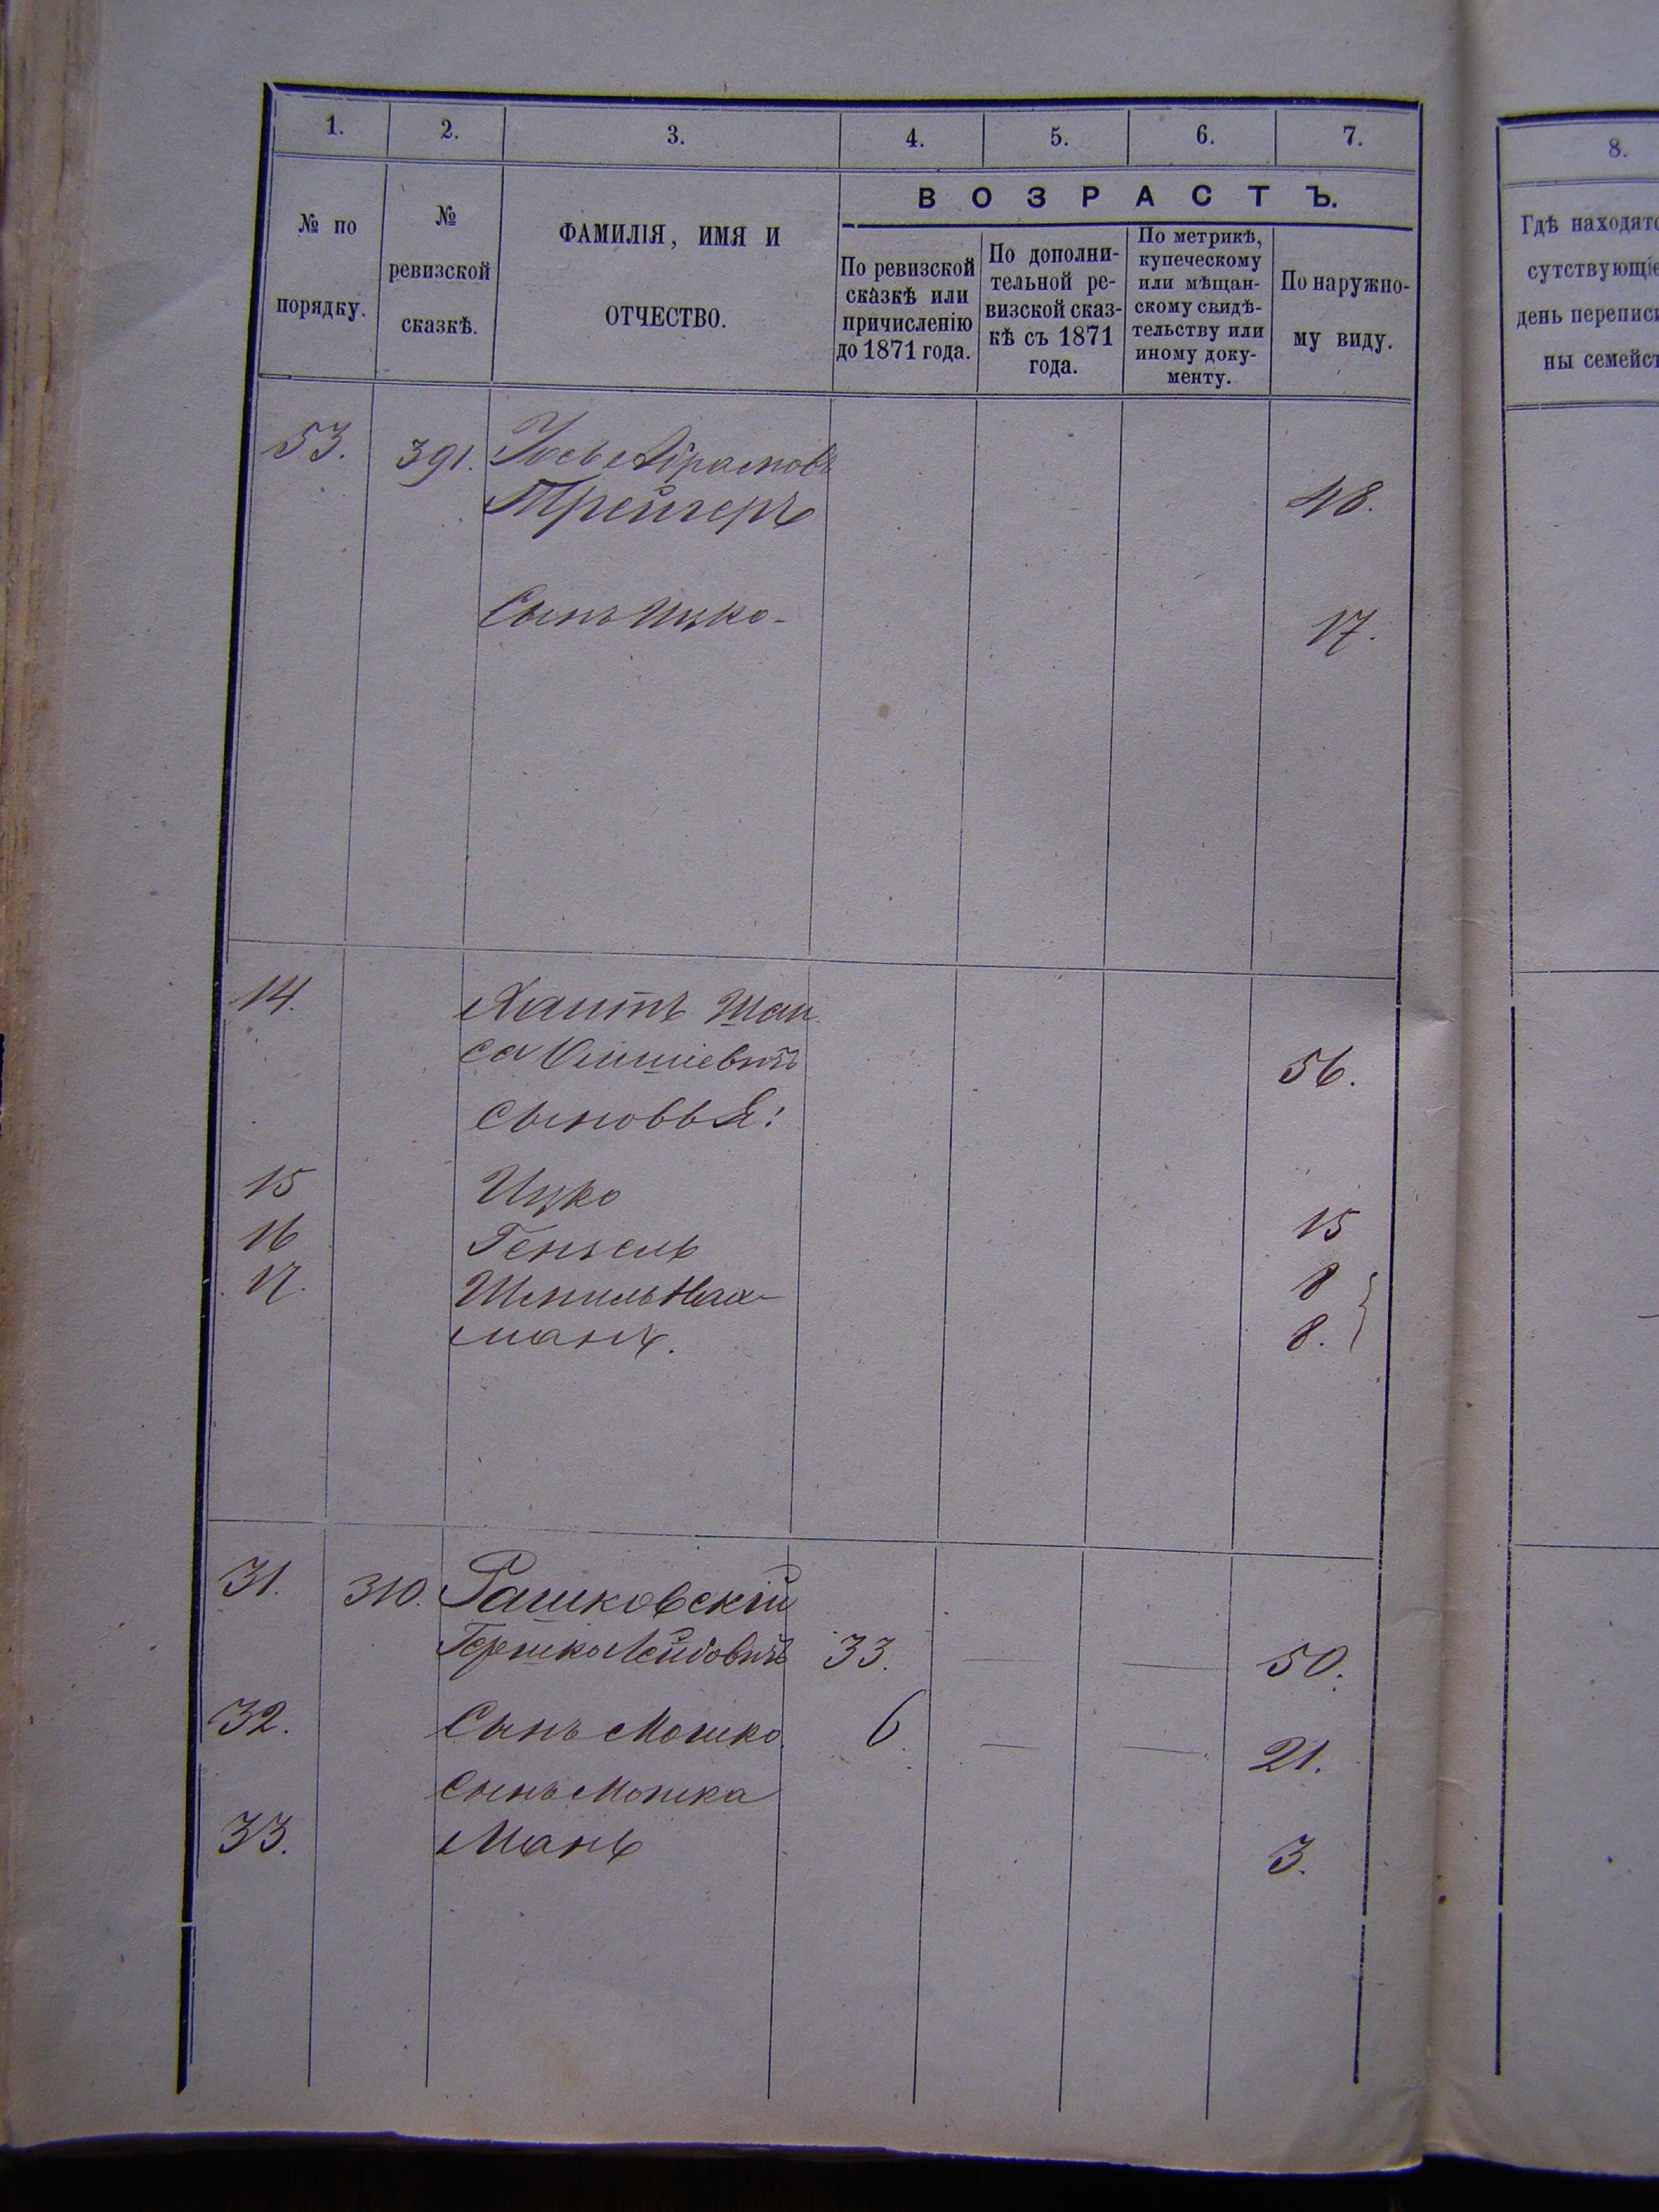 1. 2. 3. 4. 5. 6. 7.
№ по порядку.
№ ревизской сказкѣ.
ФАМИЛІЯ, ИМЯ И ОТЧЕСТВО.
ВОЗРАСТЪ.
По ревизской сказкѣ или причисленію до 1871 года.
По дополни-тельной ре-визской сказ-кѣ съ 1871 года.
По метрикѣ, купеческому или мѣщан-скому свидѣ-тельству или иному доку-менту.
По наружно-му виду.
53. 391. Іось Абрамовъ
Трейгеръ 48.
Сынъ Ицко- 17.
14. Хаитъ
56.
сыновья:
15 Ицко 15
16 Гензель 8
17. Шмиль Нах-
манъ. 8.
31. 310. Рашковскій
Гершко Лейбовичъ 33. — — 50.
32. Сынъ Мошко 6. — — 21.
Сынъ Мошка
33. Мань 3.
8.
Гдѣ находятс
сутствующіе
день переписи
ны семейст